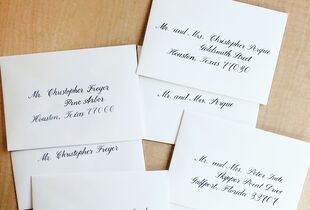 Mr. and Mrs. Christopher Pogue
Goldsmith Street
Houston, Texas 77030
Mr. Christopher Freyer
Pine Arbor
Houston, Texas 77066
Mr. and Mrs. Pogue
Mr. Christopher Freyer
Mr. and Mrs. Peter Tate
Skipper Point Drive
Gulfport, Florida 33707